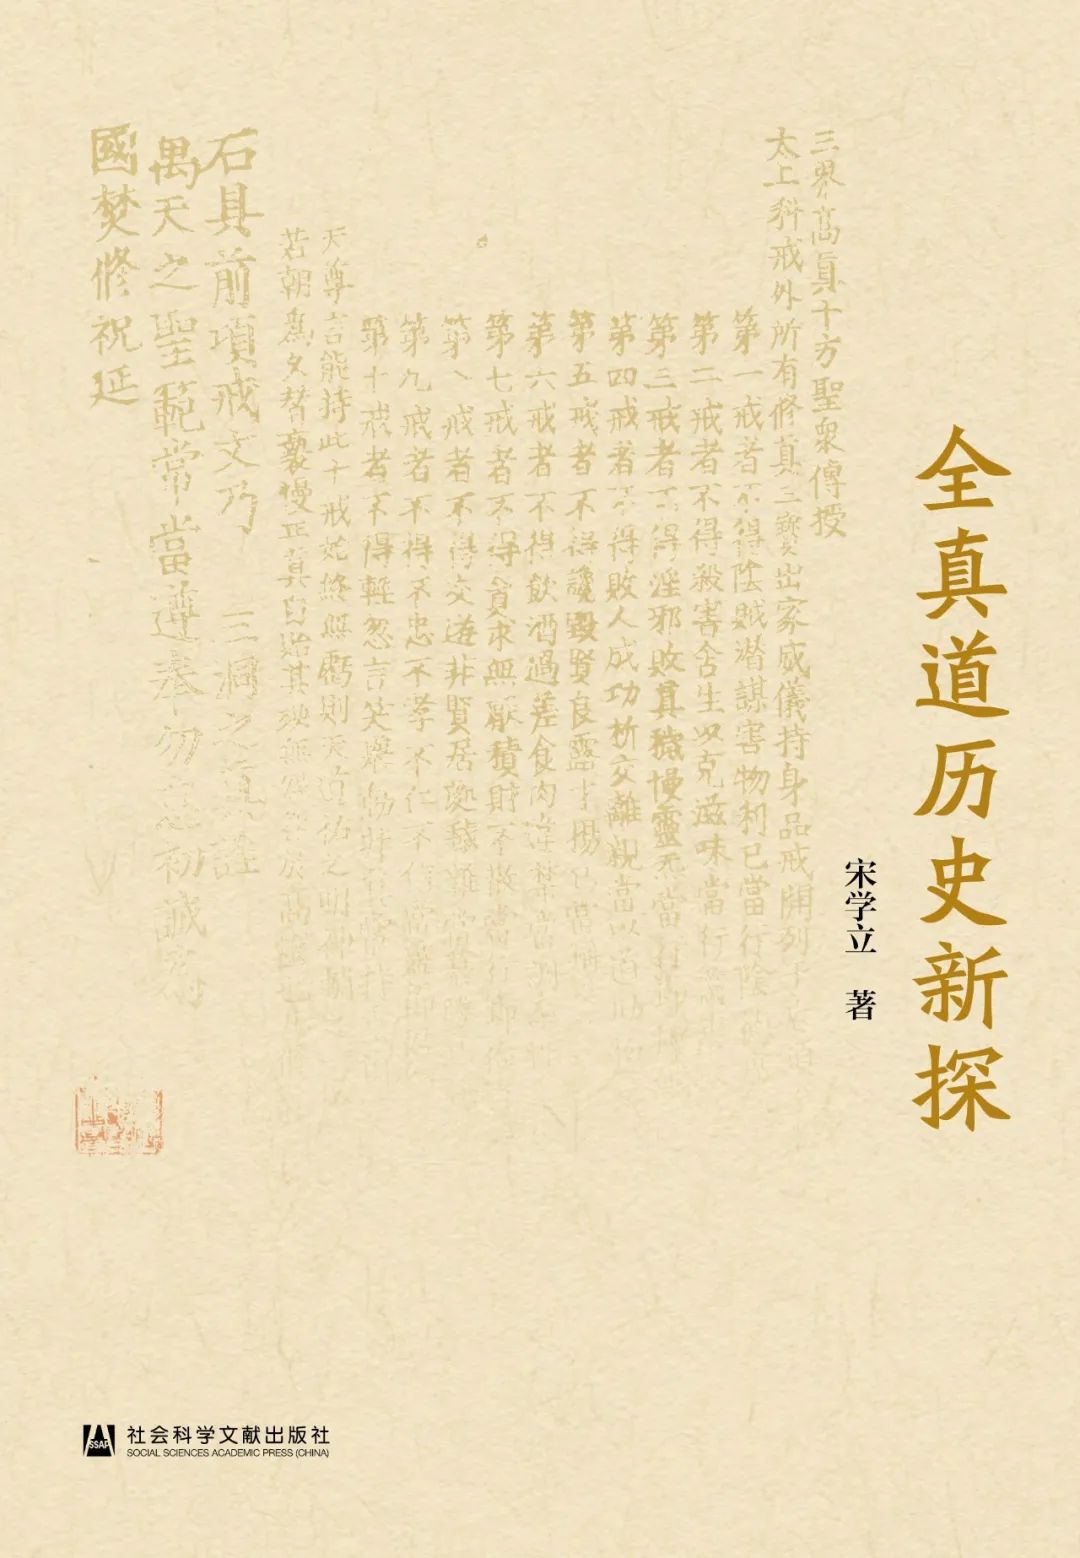 全真道历史新探
宋学立 著
三界高真十方聖衆傳授
太上科戒外所有修真三寳出家威儀持身品戒開列于
第一戒者不得陰賊潛謀害物利己當行陰
第二戒者不得殺害含生以充滋味當行
第三戒者不得淫邪敗真穢慢靈炁當
第四戒者不得敗人成功析交離親當以道助
第五戒者不得讒毀賢良露才揚己當
第六戒者不得飲酒過差食肉違禁當
第七戒者不得貪求無厭積財不散當行
第八戒者不得交遊非賢居處穢雜當
第九戒者不得不忠不孝不仁不信當
第十戒者不得輕忽言笑舉動
天尊言能持此十戒始終無虧則天
若朝爲夕替褻慢正真自貽其殃無
石具前項戒文乃 三洞之真詮
萬天之聖範常當遵奉勿忘初誠
國焚修祝延
社会科学文献出版社
SSAP
SOCIAL SCIENCES ACADEMIC PRESS (CHINA)